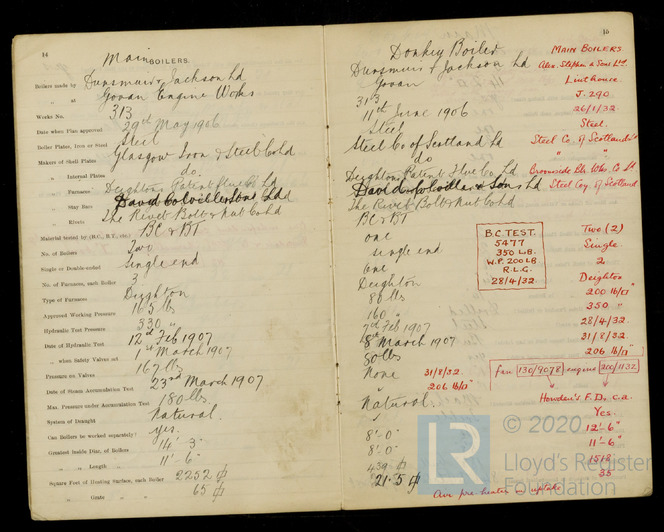 14
Main BOILERS.
Boilers made by Dunsmuir & Jackson Ld
" at Govan Engine Works
Works No. 313
Date when Plan approved 29th May 1906
Boiler Plates, Iron or Steel Steel
Makers of Shell Plates Glasgow Iron & Steel Co Ld
" Internal Plates do
" Furnaces Deighton's Patent Flue Co Ld
" Stay Bars David Colville & Sons Ld
" Rivets The Rivet Bolt & Nut Co Ld
Material tested by (B.C., B.T., etc.) BC & BT
No. of Boilers Two
Single or Double-ended Single end
No. of Furnaces, each Boiler 3
Type of Furnaces Deighton
Approved Working Pressure 165 lbs
Hydraulic Test Pressure 330 "
Date of Hydraulic Test 12th Feb 1907
" when Safety Valves set 1st March 1907
Pressure on Valves 167 lbs
Date of Steam Accumulation Test 23rd March 1907
Max. Pressure under Accumulation Test 180 lbs.
System of Draught Natural.
Can Boilers be worked separately? Yes.
Greatest Inside Diar. of Boilers 14'-3"
" " Length " 11'-6"
Square Feet of Heating Surface, each Boiler 2252 ф
" " Grate " " 65 ф
15
Donkey Boiler
Dunsmuir & Jackson Ld
Govan
313
11th June 1906
Steel
Steel Co of Scotland Ld
do
Deighton's Patent Flue Co Ld
David Colville & Sons Ld
The Rivet Bolt & Nut Co Ld
BC & BT
one
single end
one
Deighton
80 lbs
160 "
7th Feb 1907
8th March 1907
80 lbs
None
"
Natural.
8'-0"
8'-0"
439 ф
21.5 ф
MAIN BOILERS
Alex. Stephen & Sons Ltd
Linthouse.
J. 290.
26/1/32.
Steel.
Steel Co. of Scotland Ld
" "
Steel Coy. of Scotland
B.C. TEST.
5477
350 LB.
W.P. 200 LB
R.L.G.
28/4/32.
Two (2)
Single.
2
Deighton
200 lb/□"
350 "
28/4/32.
31/8/32.
206 lb/□"
31/8/32.
206 lb/□"
fan 130/9078 engine 200/1132
Howden's F.D. C.a.
Yes.
12'-6"
11'-6"
1518
35
Air pre-heater in uptake
© 2020
LR
Lloyd's Register
Foundation